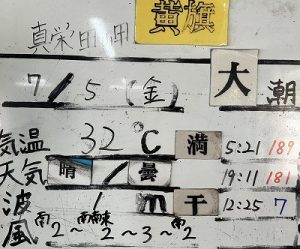 真栄田岬 黄旗
7/5(金) 大潮
気温 32℃ 満 5:21 189
天気 晴/曇 19:11 181
波 1m 干 12:25 7
風 南2~南南東2~3~南2